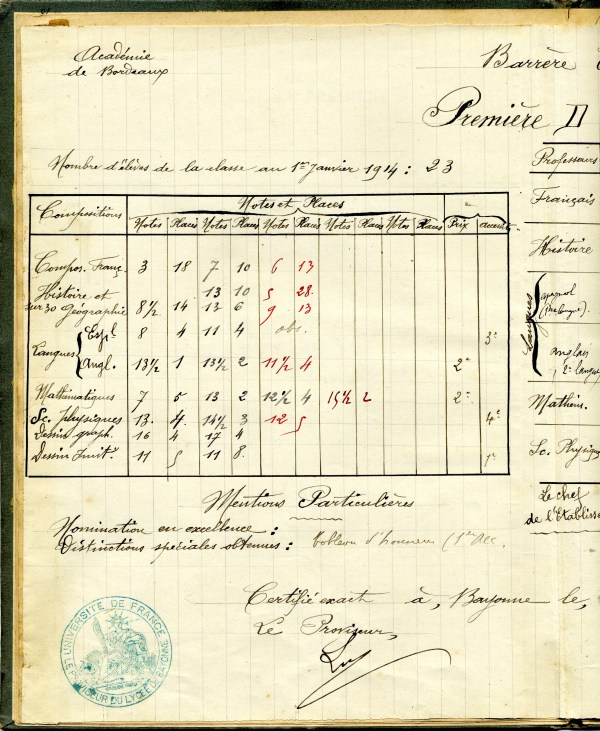 Académie
de Bordeaux
Barrère
Première D
Nombre d'élèves de la classe au 1er Janvier 1914 : 23
Compositions
Notes et Places
Notes Places Notes Places Notes Places Notes Places Notes Places Prix
Compos. Franç. 3 18 7 10 6 13
Histoire et 13 10 5 28
sur 30 Géographie 8 1/2 14 13 6 9 13
Langues
Esp. 8 4 11 4 abs. 3e
Angl. 13 1/2 1 13 1/2 2 11 1/2 4 2e
Mathématiques 7 5 13 2 12 1/2 4 15 1/2 2 2e
Sc. physiques 13 4 14 1/2 3 12 5 4e
Dessin graph. 16 4 17 4
Dessin Imit. 11 5 11 8 1r
Mentions Particulières
Nomination en excellence :
Distinctions spéciales obtenues : tableau d'honneur (1er
Certifié exact à, Bayonne le,
Le Proviseur,
UNIVERSITE DE FRANCE
PROVISEUR DU LYCEE DE BAYONNE
Professeurs
Français
Histoire
Langues
Espagnol
anglais
2e langue
Mathém.
Sc. Physique
Le chef
de l'Etablisse